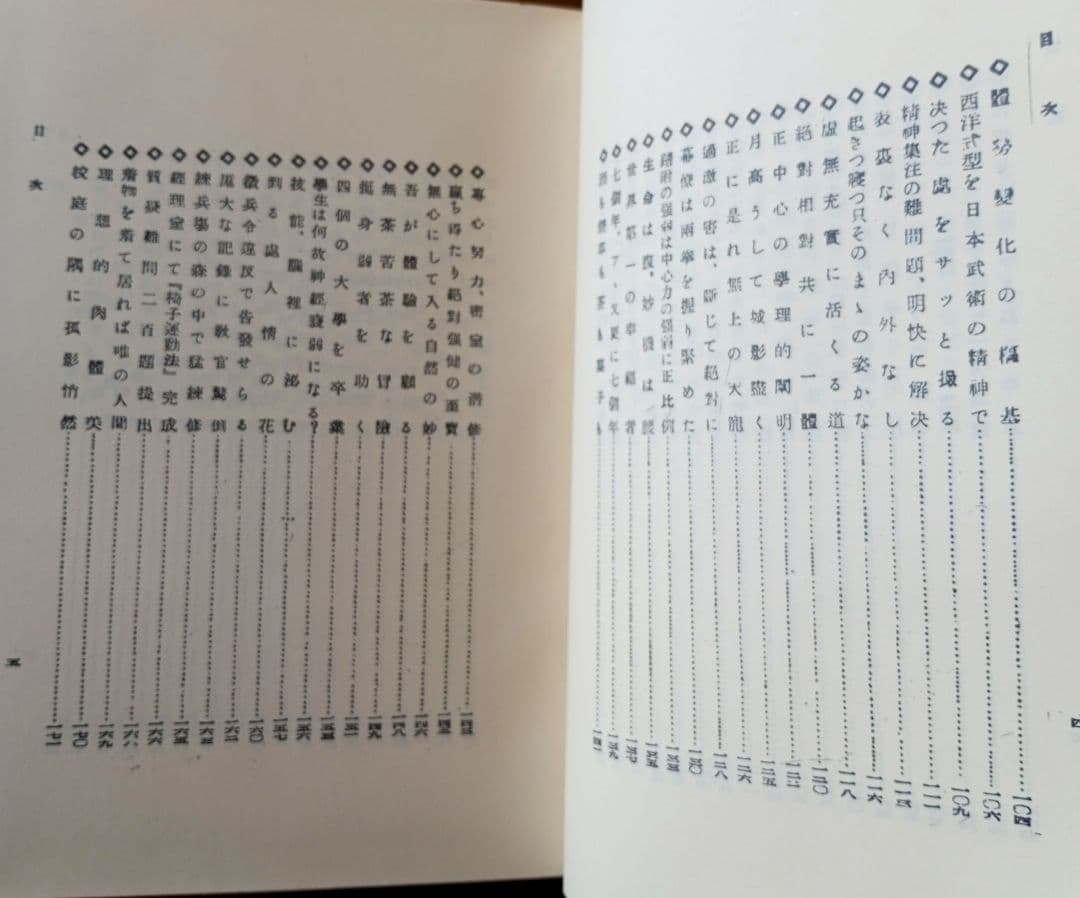 目次
◇體勢變化の樞基……一〇四
◇西洋式型を日本武術の精神で……一〇六
◇決つた處をサッと撮る……一〇九
◇精神集注の難問題、明快に解決……一一一
◇表裏なく內外なし……一一三
◇起きつ寢つ只そのまゝの姿かな……一一六
◇虛無充實に活くる道……一一八
◇絕對相對共に一體……一二〇
◇正中心の學理的闡明……一二二
◇月高うして城影盡く……一二五
◇正に是れ無上の大寵……一二六
◇過激の密は、斷じて絕對に……一二八
◇幕僚は兩拳を握り緊めた……一三〇
◇踏附の强弱は中心力の强弱に正比例……一三三
◇生命は腹、妙機は腰……一三五
◇世界第一の幸福者……一三七
◇七個年、更に七個年……一三九
◇酒も煙草も茶も菓子も……一四一
四
目次
◇專心努力、密室の潛修……一四三
◇贏ち得たり絕對强健の至寶……一四四
◇無心にして入る自然の妙……一四六
◇吾が體驗を顧る……一四八
◇無茶苦茶な冒險……一四九
◇挺身弱者を助く……一五一
◇四個の大學を卒業……一五三
◇學生は何故神經衰弱になる?……一五五
◇技能、腦裡に泌む……一五六
◇到る處人情の花……一五七
◇徵兵令違反で告發せらる……一六〇
◇尨大な記錄に敎官驚倒……一六二
◇練兵場の森の中で猛練修……一六三
◇經理室にて『椅子運動法』完成……一六五
◇質疑難問二百題提出……一六六
◇着物を着て居れば唯の人間……一六八
◇理想的肉體美……一六九
◇校庭の隅に孤影悄然……一七〇
五